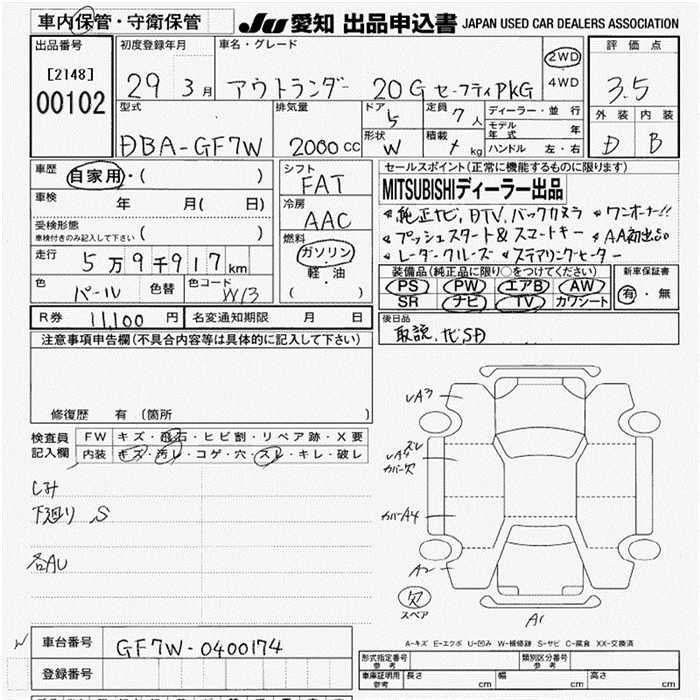 車内保管・守衛保管
JU 愛知 出品申込書 JAPAN USED CAR DEALERS ASSOCIATION
出品番号
[2148]
00102
初度登録年月
29 3月
車名・グレード
アウトランダー 20G セーフティPKG
2WD
・
4WD
評価点
3.5
外装 内装
D B
型式
DBA-GF7W
排気量
2000 cc
ドア
5
定員
7人
形状
W
積載
kg
ディーラー・並行
モデル年式 年
ハンドル 左・右
車歴
自家用・( )
車検 年 月( 日)
受検形態
車検付きのみ記入して下さい ( )
走行 5万9千917km
色 パール 色替 色コード W13
シフト
FAT
冷房
AAC
燃料
ガソリン
・
軽・油
( )
セールスポイント(正常に機能するものに限ります)
MITSUBISHIディーラー出品
純正ナビ、DTV、バックカメラ ワンオーナー!!
プッシュスタート&スマートキー AA初出品
レーダークルーズ ステアリングヒーター
装備品(純正品に限り○をつけてください)
PS PW エアB AW
SR ナビ TV カワシート
新車保証書
有・無
R券 11,100 円 名変通知期限 月 日
後日品
取説、ナビSD
注意事項申告欄(不具合内容等は具体的に記入して下さい)
修復歴 有 (箇所 )
検査員
記入欄
FW キズ・飛石・ヒビ割・リペア跡・X要
内装 キズ・汚レ・コゲ・穴・スレ・キレ・破レ
シミ
下廻り S
各AU
A3
スレ
カバー欠
カバーA4
A2
欠
スペア
A1
A-キズ E-エクボ U-凹み W-補修跡 S-サビ C-腐食 XX-交換済
車台番号 GF7W-0400174
登録番号
形式指定番号
参考
類別区分番号
参考
車庫証明用
参考
長さ cm 幅 cm 高さ cm